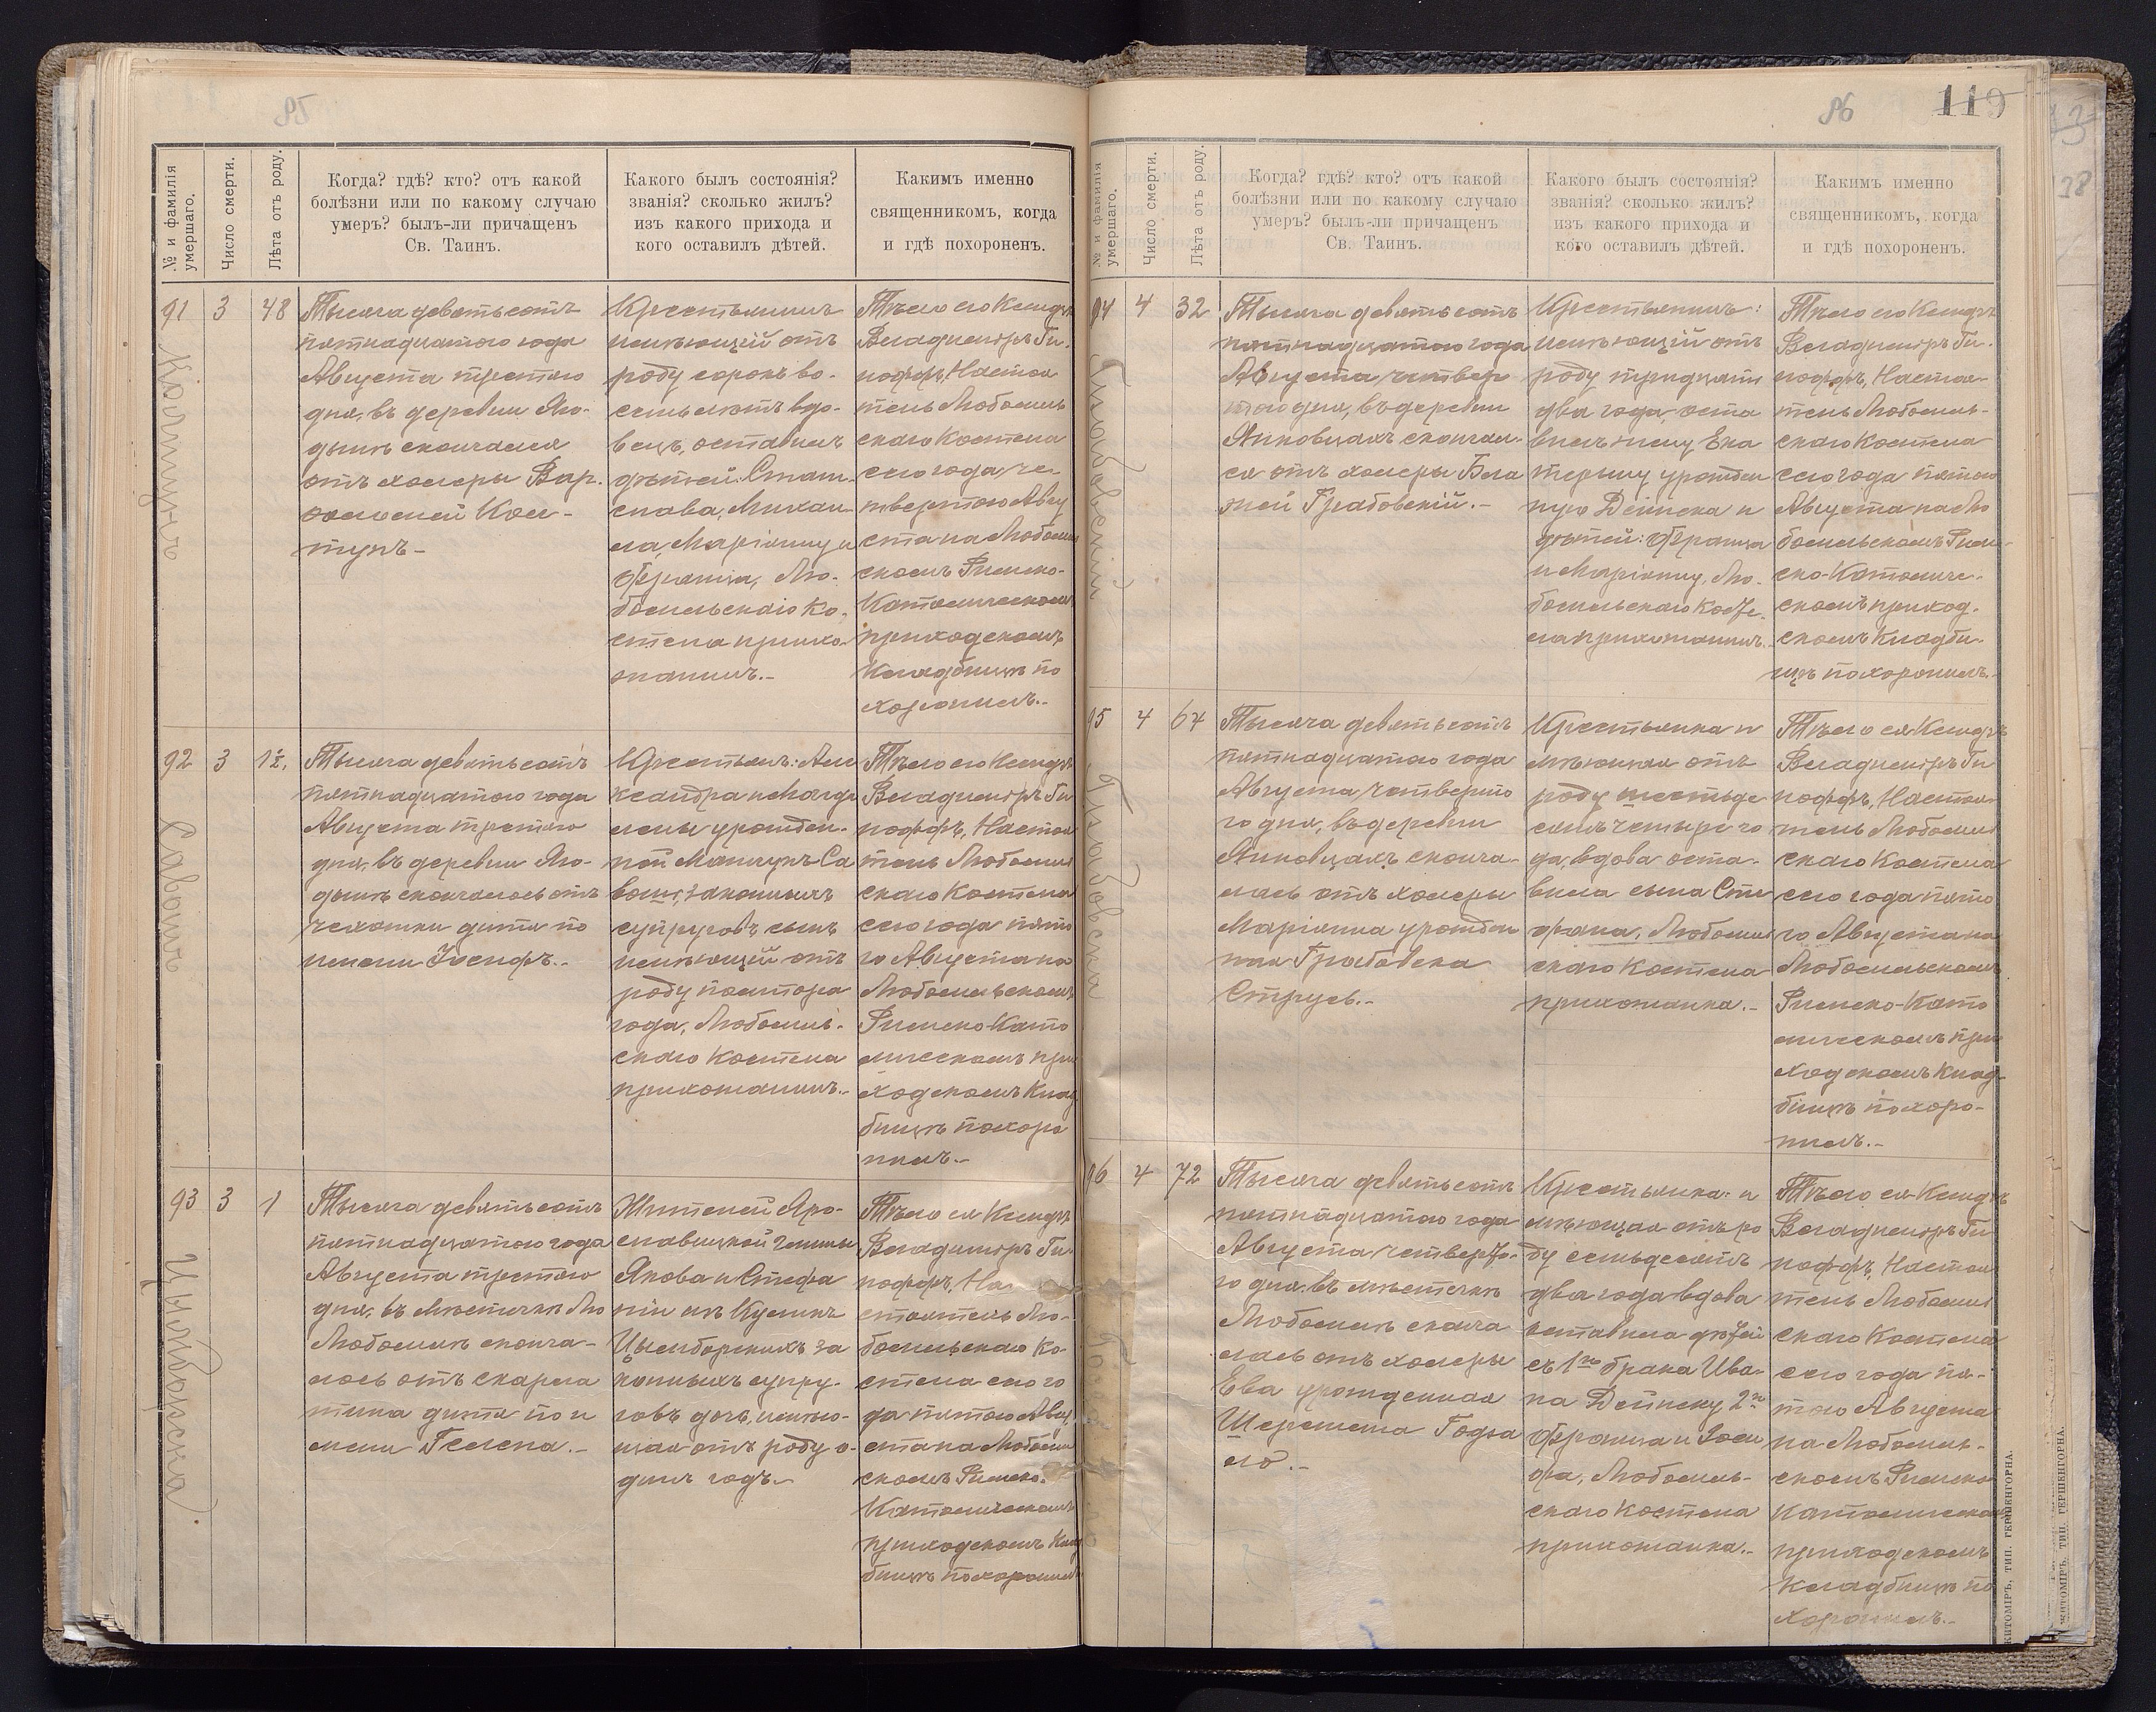 85
№ и фамилія умершаго.
Число смерти.
Лѣта отъ роду.
Когда? гдѣ? кто? отъ какой
болѣзни или по какому случаю
умеръ? былъ-ли причащенъ
Св. Таинъ.
Какого былъ состоянія?
званія? сколько жилъ?
изъ какого прихода и
кого оставилъ дѣтей.
Какимъ именно
священникомъ, когда
и гдѣ похороненъ.
91
3
48
Тысяча девятьсотъ
пятнадцатого года
Августа третьяго
дня, въ деревни
скончался
отъ холеры Вар-
ѳоломей Кол-
тунъ-
Крестьянинъ
имѣющій отъ
роду сорокъ во-
семь лѣтъ вдо-
вецъ, оставилъ
дѣтей: Стани-
слава, Михаи-
ла, Маріанну и
Франца, Лю-
бомльскаго Ко-
стела прихо-
жанинъ.-
Тѣло его Ксендзъ
Владиміръ Ги-
поффъ, Настоя
тель Любомль
скаго Костела
сего года че-
твертого Авгу
ста на Любомль
скомъ Римско-
Католическомъ
приходскомъ
Кладбищѣ по
хоронилъ.-
92
3
1½
Савошъ
Тысяча девятьсотъ
пятнадцатого года
Августа третьяго
дня, въ деревни
скончалось отъ
чахотки дитя по
имени Іосифъ.-
Крестьянъ: Але
ксандра и Магда
лены урожден-
ной Манчукъ Са
вошъ, законныхъ
супруговъ сынъ
имѣющій отъ
роду полтора
года, Любомль-
скаго Костела
прихожанинъ.-
Тѣло его Ксендзъ
Владиміръ Ги
поффъ, Настоя
тель Любомль
скаго Костела
сего года пято
го Августа на
Любомльскомъ
Римско-Като
лическомъ при
ходскомъ Клад
бищѣ похоро
нилъ.-
93
3
1
Цымборска.
Тысяча девятьсотъ
пятнадцатого года
Августа третьяго
дня, въ Мѣстечкѣ Лю
Любомлѣ сконча-
лось отъ скарла
тина дитя по и
мени Гелена.-
Жителей Яро-
славицкой Гмины
Якова и Стефа
ніи изъ
Цымборскихъ за
конныхъ супру-
говъ дочь, имѣю-
щая отъ роду о-
динъ годъ.-
Тѣло ея Ксендзъ
Владиміръ Ги-
поффъ, На-
стоятель Лю-
бомльскаго Ко-
стела сего го
да пятого Авгу
ста на Любомль
скомъ Римско-
Католическомъ
приходскомъ Клад
бищѣ похоронилъ
86
119
№ и фамилія умершаго.
Число смерти.
Лѣта отъ роду.
Когда? гдѣ? кто? отъ какой
болѣзни или по какому случаю
умеръ? былъ-ли причащенъ
Св. Таинъ.
Какого былъ состоянія?
званія? сколько жилъ?
изъ какого прихода и
кого оставилъ дѣтей.
Какимъ именно
священникомъ, когда
и гдѣ похороненъ.
94
4
32
Грабовскій
Тысяча девятьсотъ
пятнадцатого года
Августа четвер
того дня, въ деревни
Янковцахъ скончал-
ся отъ холеры Бла
жей Грабовскій.-
Крестьянинъ:
имѣющій отъ
роду тридцать
два года, оста
вилъ жену Ека
терину урожден
ную Дейнека и
дѣтей: Франца
и Маріанну, Лю-
бомльскаго Косте-
ла прихожанинъ.-
Тѣло его Ксендзъ
Владиміръ Ги-
поффъ, Настоя-
тель Любомль-
скаго Костела
сего года пятого
Августа на Лю
бомльскомъ Рим-
ско-Католиче-
скомъ приход-
скомъ Кладби-
щѣ похоронилъ.-
95
4
64
Грабовска
Тысяча девятьсотъ
пятнадцатого года
Августа четверто
го дня, въ деревни
Янковцахъ сконча-
лась отъ холеры
Маріанна урожден
ная Грабовска
Струсь.-
Крестьянка и
мѣющая отъ
роду шестьде
сятъ четыре го
да, вдова оста-
вила сына Сте
фана, Любомль
скаго Костела
прихожанка.-
Тѣло ея Ксендзъ
Владиміръ Ги
поффъ, Настоя
тель Любомль
скаго Костела
сего года пято
го Августа на
Любомльскомъ
Римско-Като
лическомъ при
ходскомъ Клад-
бищѣ похоро-
нилъ.-
96
4
72
Тысяча девятьсотъ
пятнадцатого года
Августа четверто-
го дня, въ мѣстечкѣ
Любомлѣ сконча
лась отъ холеры
Ева урожденная
Шеремета Годва
ло.-
Крестьянка: и
мѣющая отъ ро
ду семьдесятъ
два года вдова
оставила дѣтей
съ 1го брака Ива-
на Дейнеку 2го
Франца и Іоси
фа, Любомль-
скаго Костела
прихожанка.-
Тѣло ея Ксендзъ
Владиміръ Ги
поффъ, Настоя
тель Любомль
скаго Костела
сего года пя-
того Августа
на Любомль-
скомъ Римско
Католическомъ
приходскомъ
Кладбищѣ по
хоронилъ.-
ЖИТОМІРЪ, ТИП. ГЕРШЕНГОРНА.
ЖИТОМІРЪ, ТИП. ГЕРШЕНГОРНА.